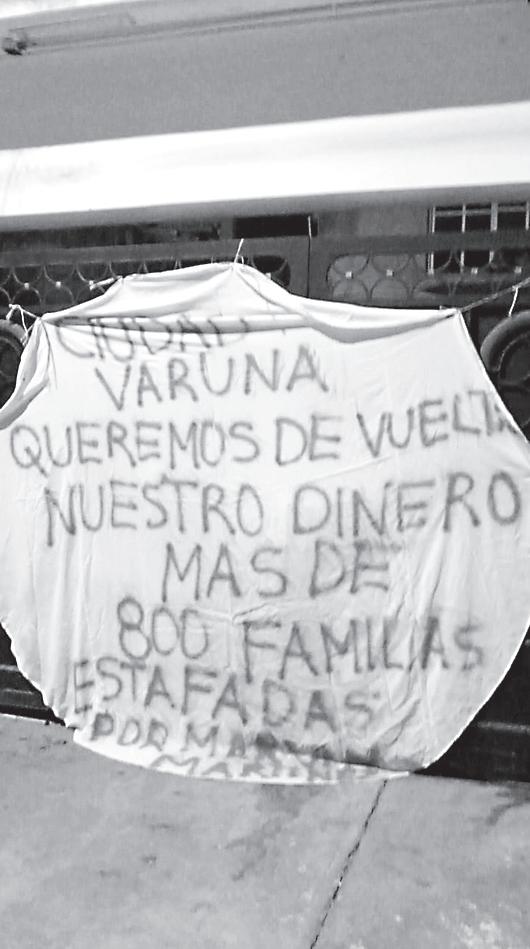 CIUDAD
VARUNA
QUEREMOS DE VUELTA
NUESTRO DINERO
MAS DE
800 FAMILIAS
ESTAFADAS
POR